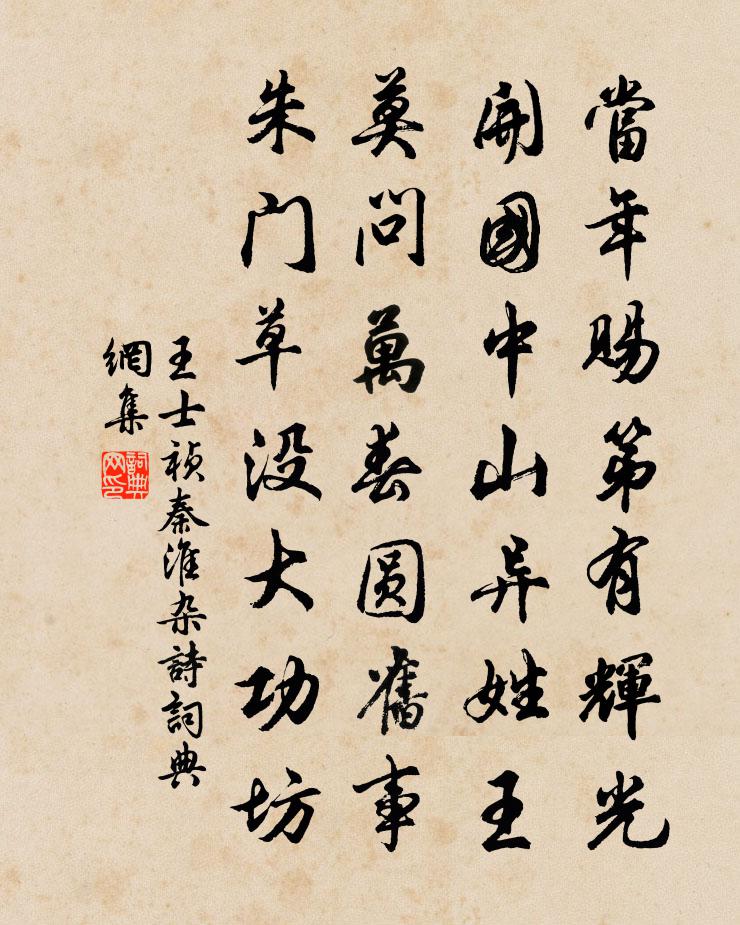 當年賜第有輝光
開國中山异姓王
莫問萬春圓舊事
朱門草没大功坊
王士禎秦淮杂詩詞典
網集
詞典
网印